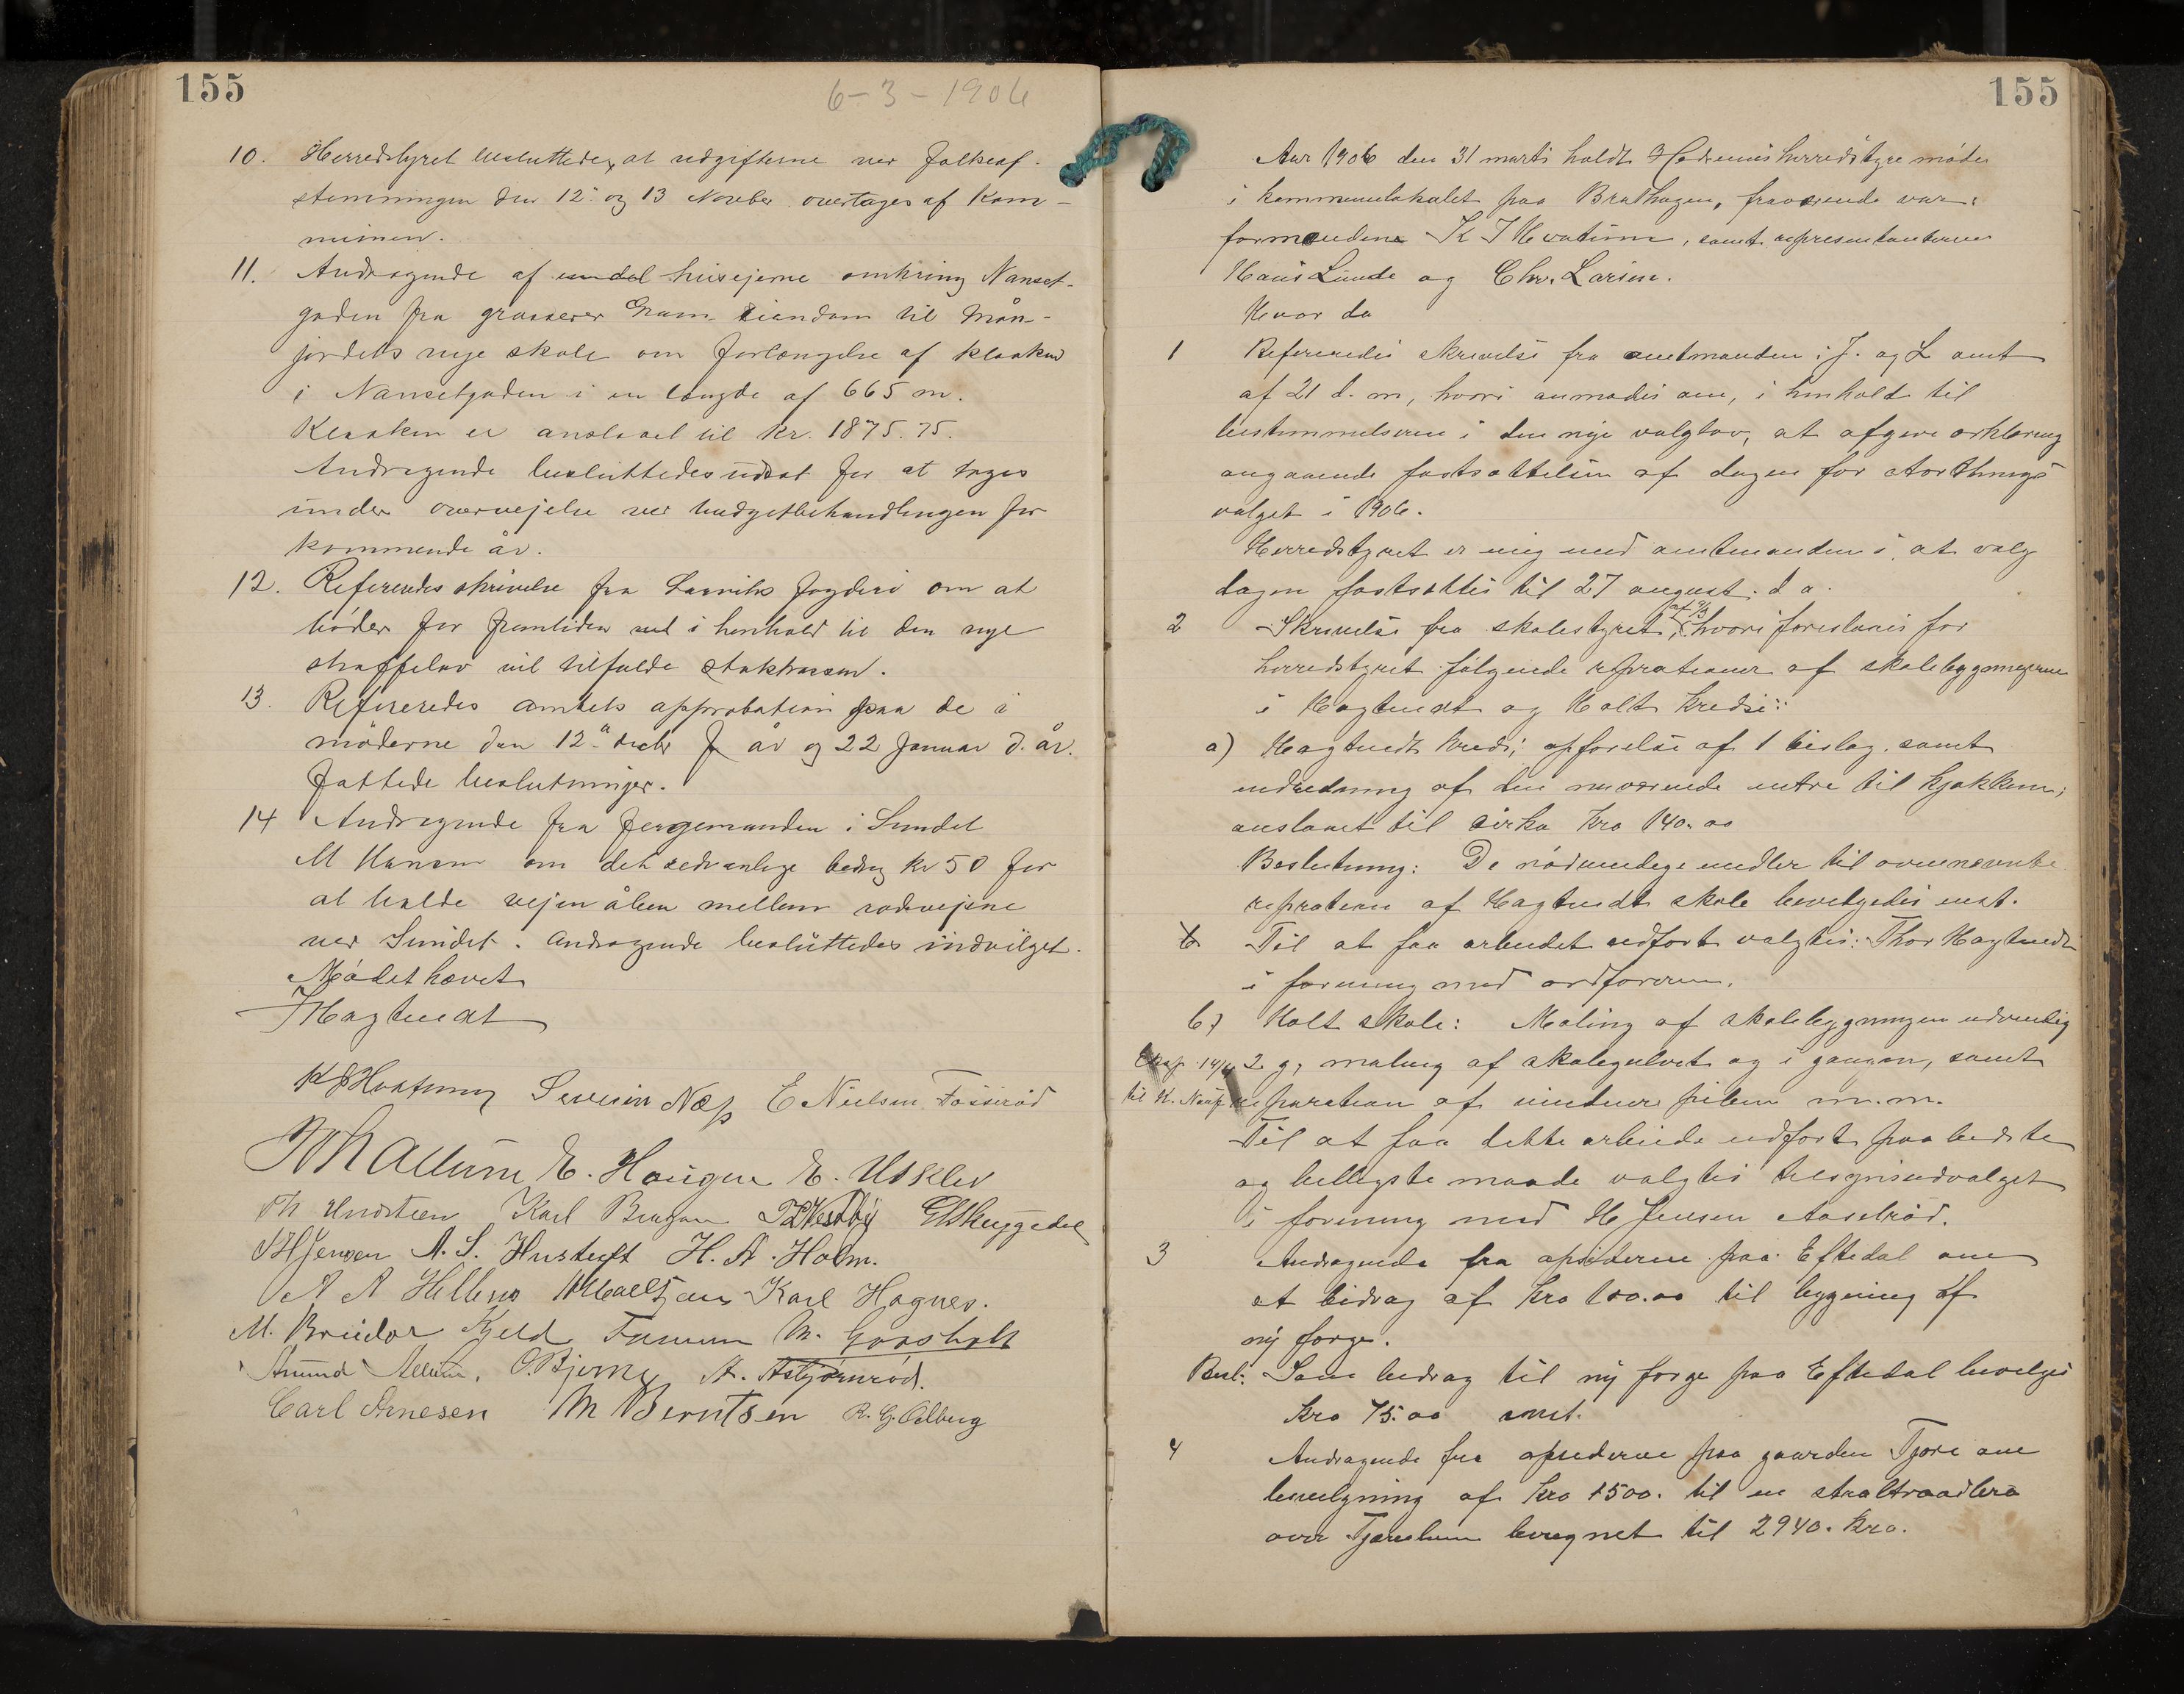 155
6-3-1906
10. Herredstyret besluttedes, at udgifterne ved folkeaf-
stemningen den 12. og 13 November overtages af Kom-
munen.
11. Andragende af endel husejerne omkring Nanset-
gaden fra grosserer Grams eiendom til Mån-
jordets nye skole om forlængelse af kloaken
i Nansetgaden i en længde af 665 m.
Kloaken er anslaaet til kr. 1875.75.
Andragende besluttedes udsat for at tages
under overvejelse ved budgetbehandlingen for
kommende år.
12. Refereredes skrivelse fra Larviks fogderi om at
bøder for fremtiden vil i henhold til den nye
straffelov vil tilfalde statskassen.
13. Refereredes amtets approbation paa de i
møderne den 12. decbr f år og 22 Januar d. år.
fattede beslutninger.
14 Andragende fra fergemanden i Sundet
M Hansen om det sedvanlige bidrag kr 50 for
at holde vejen åben mellem rodevejene
ved Sundet. Andragende besluttedes indvilget.
Mødet hævet
Hagtvedt
Severin Næss E Nielsen Fosserød
Allum E. Haugen E. Utklev
Karl Bergan Vestby Skuggedal
Jensen A. S. Hustuft H. A. Holm.
A A Hellenes Karl Hagnes.
M. Kjeld Famum M. Gaasholt
Amund Allum, O. Bjerke A. Asbjørnrød.
Carl Arnesen M Berntsen R. G. Odberg
155
Aar 1906 den 31 marts holdt Hedrums herredstyre møde
i kommunelokalet paa Brathagen, fraværende var:
formanden K J Hvatum, samt representanterne
Hans Lunde og Chr. Larsen.
Hvor da
1 Refereredes skrivelse fra amtmanden i J. og L amt
af 21 d. m, hvori anmodes om, i henhold til
bestemmelserne i den nye valglov, at afgive erklæring
angaaende fastsættelsen af dagen for storthings
valget i 1906.
Herredstyret er enig med amtmanden i, at valg
dagen fastsættes til 27 august. d a.
2 Skrivelse fra skolestyret, hvori foreslaaes for
herredstyret følgende reprationer af skolebygningerne
i Hagtvedt og Holt kredse:
a) Hagtvedt kreds; opførelse af 1 bislag. samt
indredning af den nuværende entre til kjøkken;
anslaaet til cirka kro 140.00
Beslutning: De nødvendige midler til ovennævnte
repration af Hagtvedt skole bevilgedes enst.
b Til at faa arbeidet udført valgtes: Thor Hagtvedt
i forening med ordføreren.
b) Holt skole: Maling af skolebygningen udvendig
Eksp. 14/4 2 g, maling af skolegulvet og i gangen, samt
til K. reparation af vinduer pipen m.m.
Til at faa dette arbeide udført paa bedste
og billigste maade valgtes tilsynsudvalget
i forening med H Jensen Aaselrød.
3 Andragende fra opsidderne paa Eftedal om
et bidrag af kro 100.00 til bygning af
ny færge.
Besl: Som bidrag til ny færge paa Eftedal bevilges
kro 75.00 enst.
4 Andragende fra opsidderne paa gaarden Tjøre om
bevilgning af kro 1500. til en staaltraadbro
over beregnet til 2940. kro.